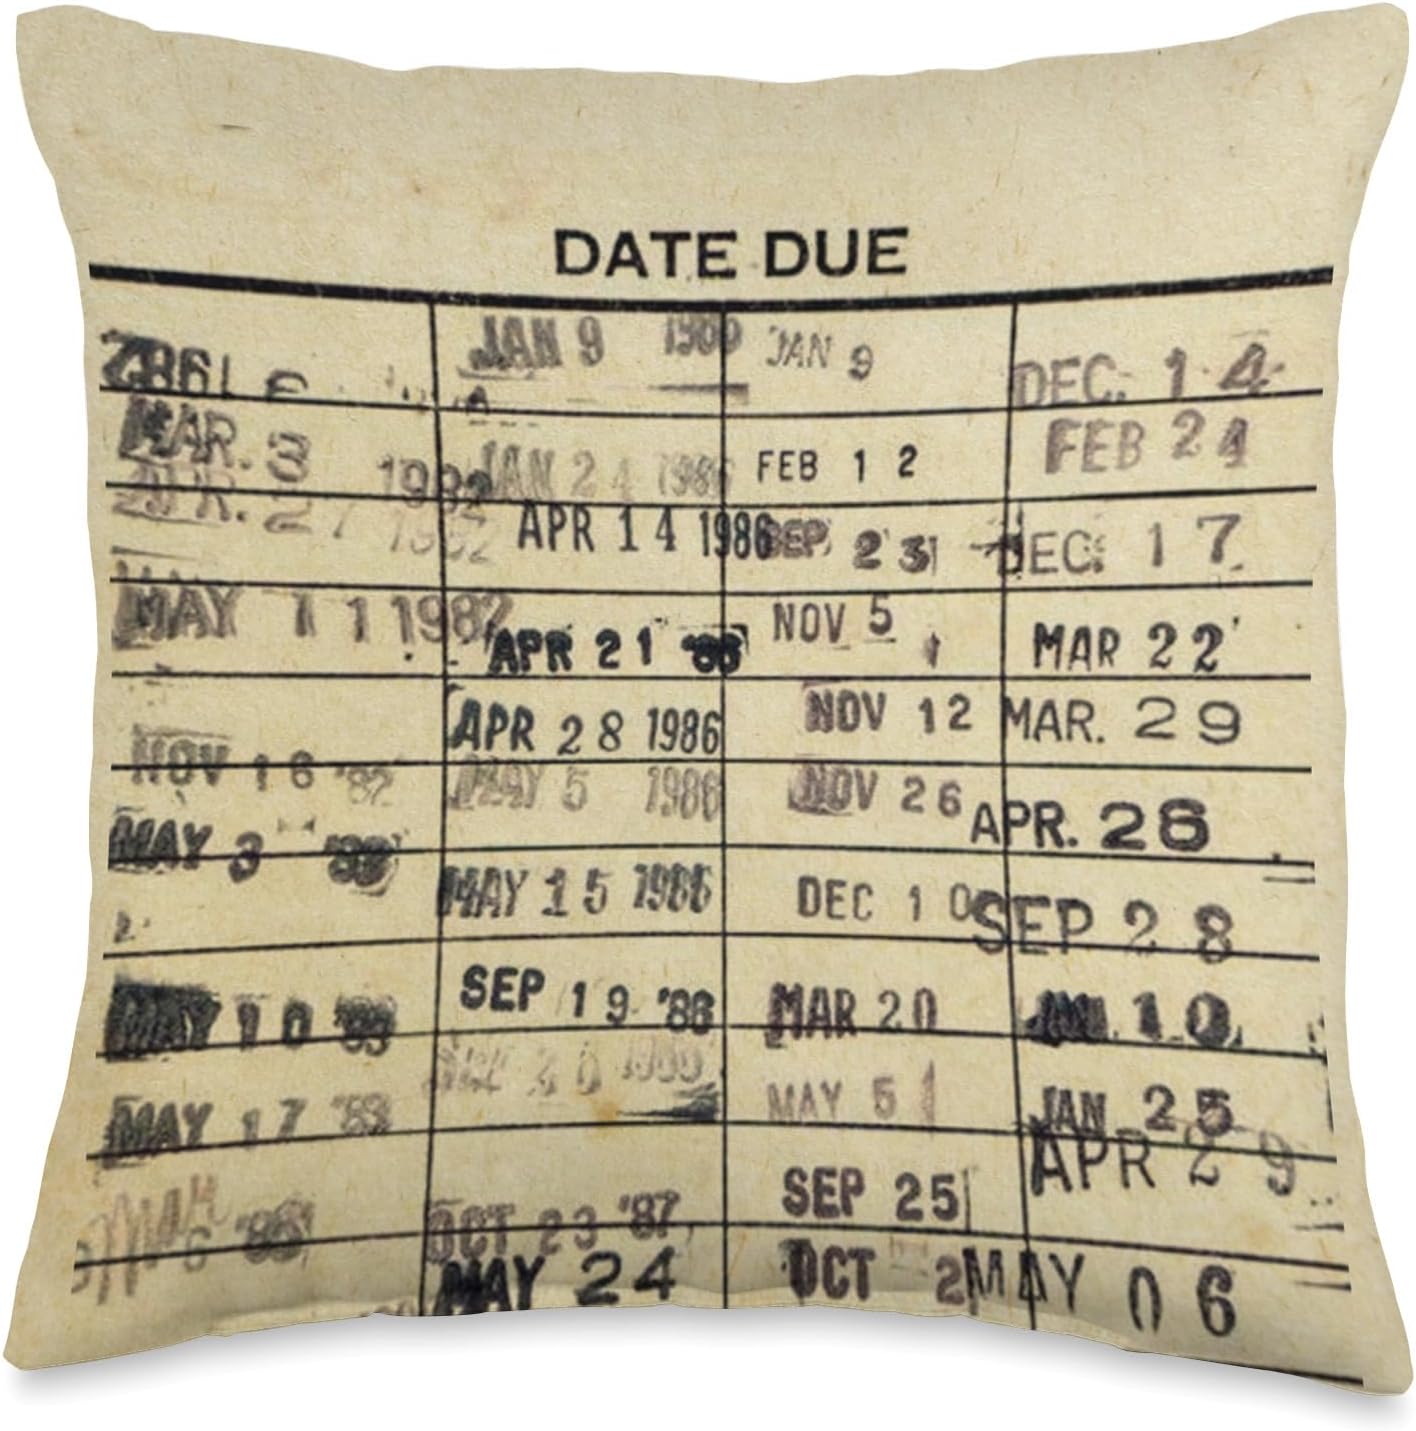 DATE DUE
JAN 9 1986 JAN 9 DEC. 14
MAR. 3 1982 JAN 24 1986 FEB 12 FEB 24
APR. 27 1982 APR 14 1986 SEP 23 DEC. 17
MAY 11 1982 APR 21 '86 NOV 5 MAR 22
APR 28 1986 NOV 12 MAR. 29
NOV 16 '82 MAY 5 1986 NOV 26 APR. 26
MAY 3 '83 MAY 15 1986 DEC 10 SEP 28
MAY 10 '83 SEP 19 '86 MAR 20 JAN 10
MAY 17 '83 1986 MAY 5 JAN 25
OCT 23 '87 SEP 25 APR 29
MAY 24 OCT 2 MAY 06